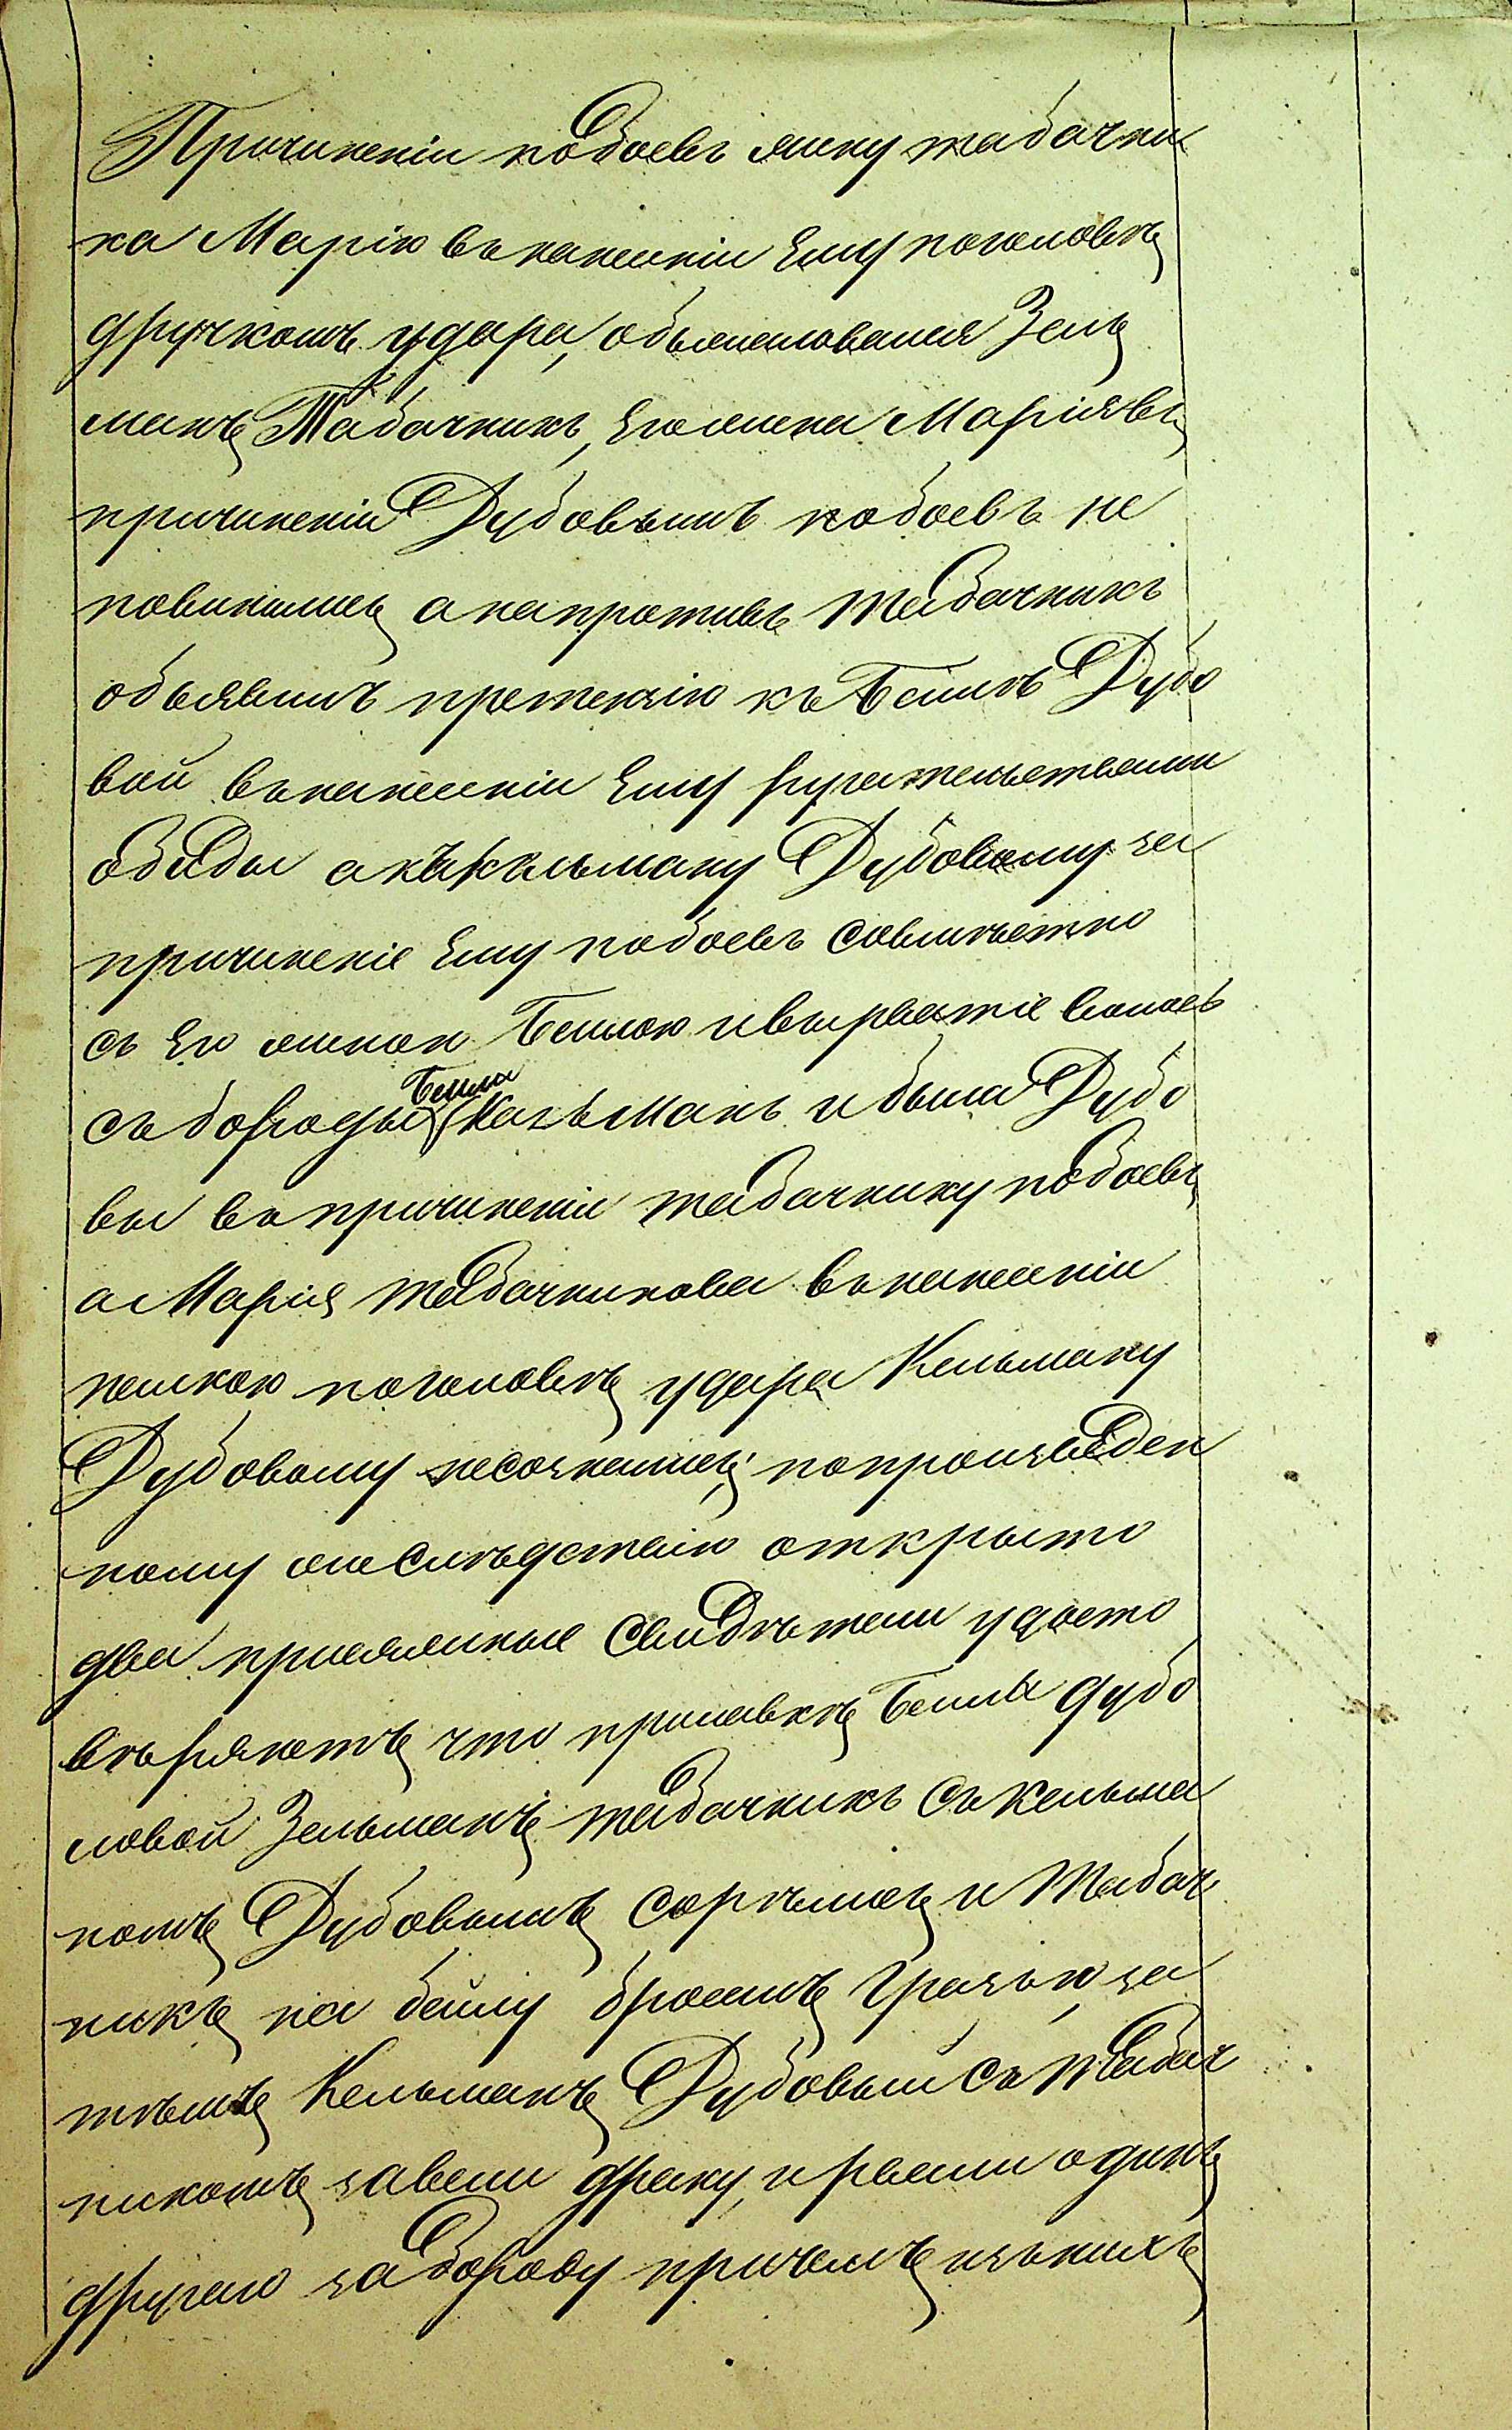 Причиненіи побоевъ жену табачни
ка Марію въ нанесеніи Ему поголовѣ
дручкомъ удара, обжаловался Зель
манъ Табачникъ, Его жена Марія въ
причиненіи Дубовымъ побоевъ не
повинились а напротивъ Табачникъ
объявилъ претензію къ Бейлѣ Дубо
вой въ нанесеніи Ему ругательствами
обиды а къ Кельману Дубовому за
причиненіе Ему побоевъ совмѣстно
съ Его женою Бейлою и вырватіе волосъ
съ бороды Бейла
Кельманъ и бейла Дубо
вы въ причиненіи табачнику побоевъ
а Марія табачникова въ нанесеніи
палкою поголовѣ удара Кельману
Дубовому несознались; по произведен
ному же слѣдствію открыто
два присяжные свидѣтели удосто
вѣряютъ что при лавкѣ Бейлы дубо
ловой Зельманъ табачникъ съ кельма
номъ Дубовымъ сорились и Табач
никъ на бейлу бросилъ грязью, за
тѣмъ Кельманъ Дубовый съ табач
никомъ завели драку, и рвали одинъ
другаго за бороду причемъ изъ нихъ